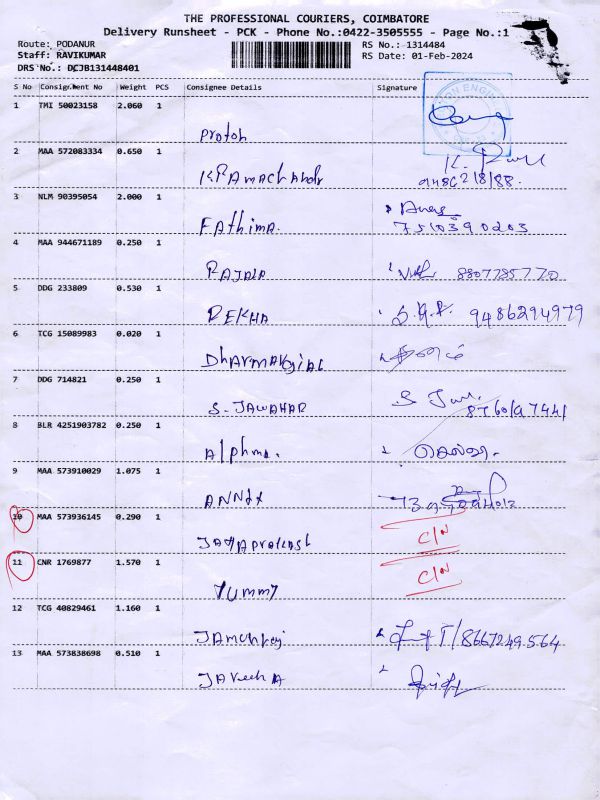 THE PROFESSIONAL COURIERS, COIMBATORE
Delivery Runsheet - PCK - Phone No.:0422-3505555 - Page No.:1
Route: PODANUR
RS No.: 1314484
Staff: RAVIKUMAR
RS Date: 01-Feb-2024
DRS No.: DCJB131448401
S No Consignment No Weight PCS Consignee Details Signature
1 TMI 50023158 2.060 1
2 MAA 572083334 0.650 1
3 NLM 90395054 2.000 1
FAthima.
7510390203
4 MAA 944671189 0.250 1
RAJALA
8807785770
5 DDG 233809 0.530 1
REKHA
9486294979
6 TCG 15089983 0.020 1
7 DDG 714821 0.250 1
S. JAWAHAR
8 BLR 4251903782 0.250 1
Alphma.
9 MAA 573910029 1.075 1
10 MAA 573936145 0.290 1
JAYAPrakash
C/N
11 CNR 1769877 1.570 1
YUMMY
C/N
12 TCG 40829461 1.160 1
8667249564
13 MAA 573838698 0.510 1